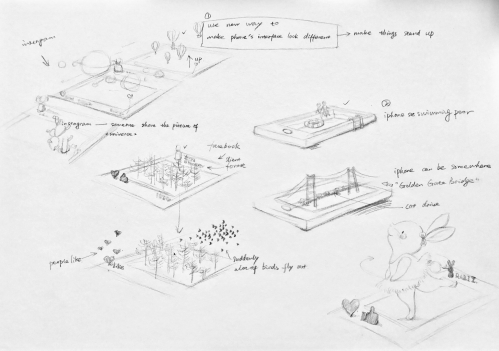 ①
use new way to
make phone's interface look different → make things stand up
instagram
up
instagram — someone share the picture of
universe.
②
iphone as swimming pool
facebook
iphone can be somewhere
"Golden Gate Bridge"
car drive
people like
suddenly
a lot of birds fly out